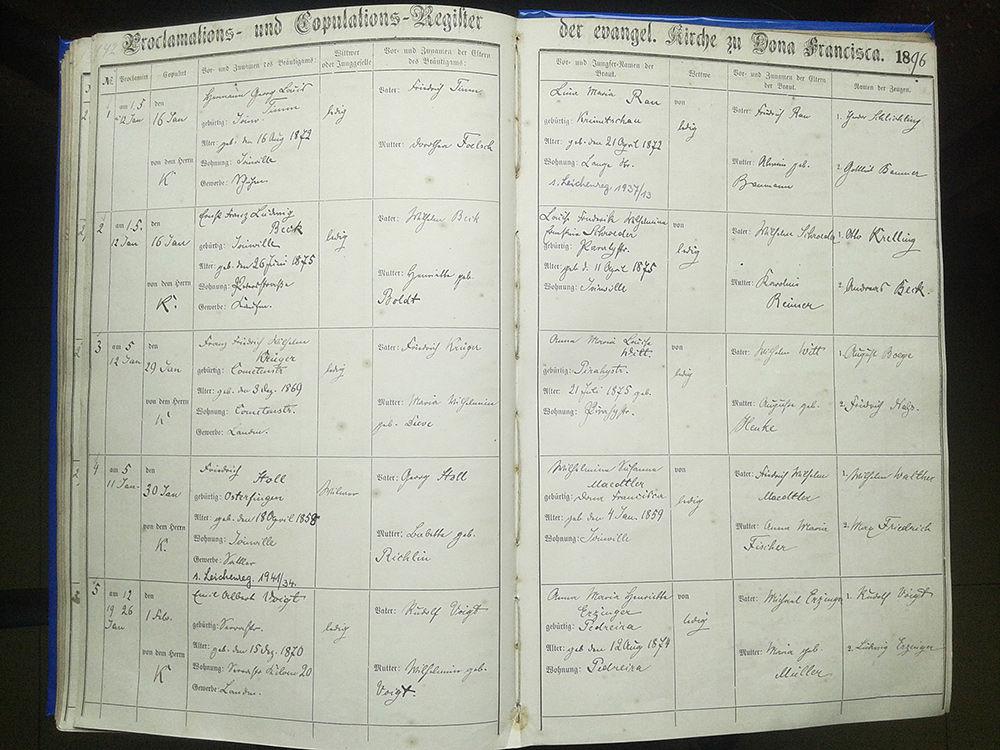 142
Proclamations- und Copulations-Register
der evangel. Kirche zu Dona Francisca. 1896
№. Proclamirt Copulirt Vor- und Zunamen des Bräutigams: Wittwer oder Junggeselle Vor- und Zunamen der Eltern des Bräutigams:
Vor- und Jungfer-Namen der Braut. Wettwe Vor- und Zunamen der Eltern der Braut. Namen der Zeugen.
1 am 1. 5 12 Jan
den 16 Jan
von dem Herrn K
Hermann Georg Louis Timm
gebürtig: Joinv
Alter: geb. den 16 Aug 1872
Wohnung: Joinville
Gewerbe:
ledig
Vater: Friedrich Timm
Mutter: Dorothea
Lina Maria Rau
gebürtig: Krimitschau
Alter: geb. den 21 April 1872
Wohnung: Lange Str.
s. Leichenreg. 1937/13
von
ledig
Vater: Friedrich Rau
Mutter: geb. Baumann
1. Schlichting
2. Gottlieb
2 am 1. 5. 12 Jan
den 16 Jan
von dem Herrn K.
Ernst Franz Ludwig Beck
gebürtig: Joinville
Alter: geb. den 26 Juni 1875
Wohnung: Peterstraße
Gewerbe: Kaufm.
ledig
Vater: Wilhelm Beck
Mutter: Henriette geb. Boldt
Louise Friederike Wilhelmine Schroeder
gebürtig: Paratystr.
Alter: geb d. 11 April 1875
Wohnung: Joinville
von
ledig
Vater: Wilhelm Schroeder
Mutter: Karoline Reimer
1. Otto Krelling
2. Andreas Beck.
3 am 5 12 Jan
den 29 Jan
von dem Herrn K
Franz Friedrich Wilhelm Krüger
gebürtig: Cometenstr.
Alter: geb. den 3 Dez. 1869
Wohnung: Cometenstr.
Gewerbe: Landm.
ledig
Vater: Friedrich Krüger
Mutter: Maria Wilhelmine geb.
Anna Maria Louise Witt
gebürtig:
Alter: 21 Juli 1875 geb.
Wohnung:
von
ledig
Vater: Wilhelm Witt
Mutter: Auguste geb. Henke
1. August Boege
2. Friedrich
4 am 5 11 Jan
den 30 Jan
von dem Herrn K.
Friedrich Stoll
gebürtig: Osterfingen
Alter: geb. den 18 April 1858
Wohnung: Joinville
Gewerbe: Sattler
s. Leichenreg. 1941/34.
Witwer
Vater: Georg Stoll
Mutter: Babette geb. Richlin
Wilhelmine Susanna Maedtler
gebürtig: Dona Francisca
Alter: geb den 4 Jan. 1859
Wohnung: Joinville
von
ledig
Vater: Friedrich Wilhelm Maedtler
Mutter: Anna Maria Fischer
1. Wilhelm Walther
2. Max Friedrich
5 am 12 19 26 Jan
den 1 Feb.
von dem Herrn K
Emil Albert Voigt
gebürtig: Serrastr.
Alter: geb. den 15 Dez. 1870
Wohnung: Serrastr Kilom 20
Gewerbe: Landm.
ledig
Vater: Rudolf Voigt
Mutter: Wilhelmine geb. Voigt
Anna Maria Henriette Erzinger
gebürtig: Pedreira
Alter: geb den 12 Aug 1874
Wohnung: Pedreira
von
ledig
Vater: Michael Erzinger
Mutter: Maria geb. Müller
1. Rudolf Voigt
2. Ludwig Erzinger